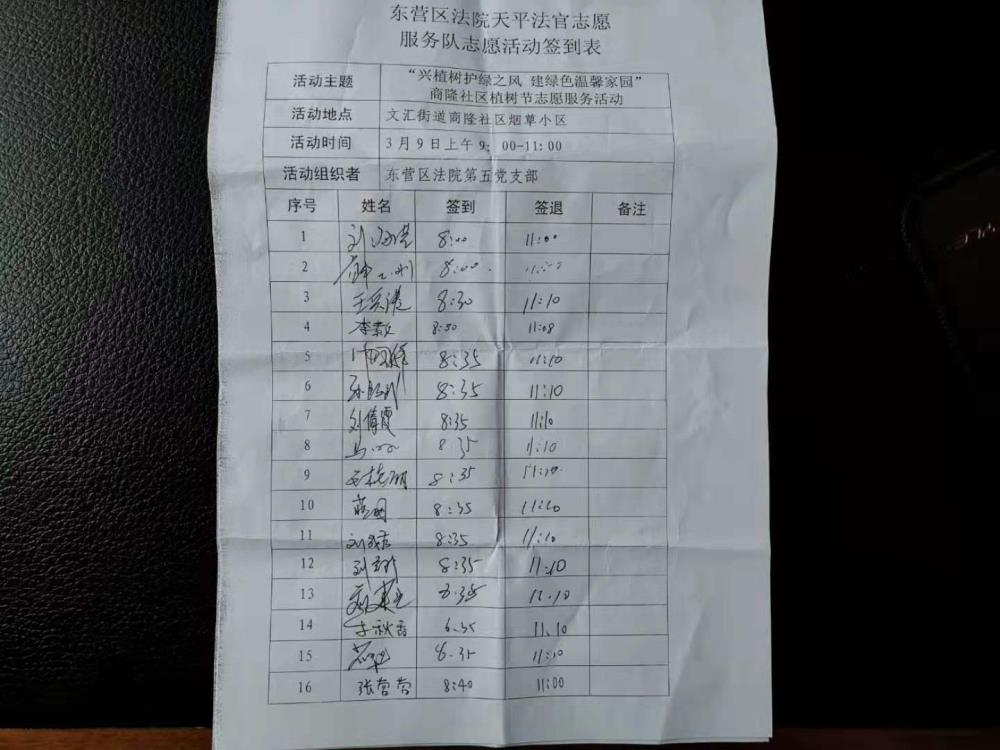 东营区法院天平法官志愿
服务队志愿活动签到表
活动主题 “兴植树护绿之风 建绿色温馨家园”
商隆社区植树节志愿服务活动
活动地点 文汇街道商隆社区烟草小区
活动时间 3月9日上午9:00-11:00
活动组织者 东营区法院第五党支部
序号 姓名 签到 签退 备注
1 刘 8:00 11:00
2 8:00
3 王 8:30 11:10
4 李 8:30 11:08
5 8:35 11:10
6 8:35 11:10
7 刘倩霞 8:35 11:10
8 马 8:35 11:10
9 8:35 11:10
10 8:35 11:10
11 刘 8:35 11:10
12 8:35 11:10
13 8.35 11.10
14 李秋香 11.10
15 8.35 11:10
16 张营营 8:40 11:00